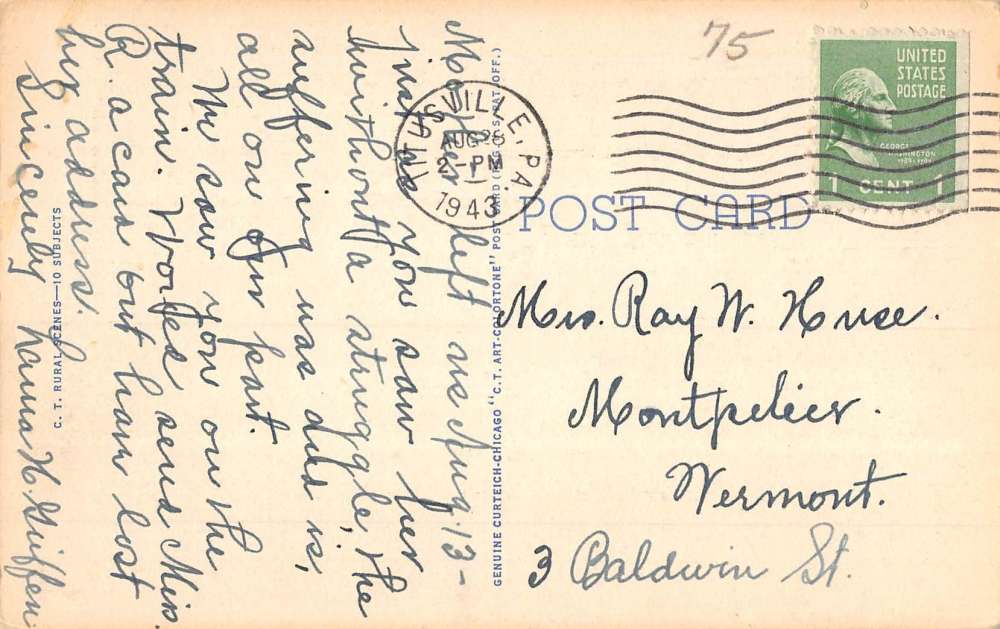 Mother left us Aug. 13 -
just as you saw her
without a struggle, the
suffering was and is,
all on our part.
We saw you on the
train. Would send Miss
R. a card but have lost
her address.
Sincerely Nanna H. Giffen
C. T. RURAL SCENES—10 SUBJECTS
GENUINE CURTEICH-CHICAGO "C.T. ART-COLORTONE" POST CARD (REG. U.S. PAT. OFF.)
TITUSVILLE, PA.
AUG 28
2 - PM
1943
75
UNITED
STATES
POSTAGE
GEORGE
WASHINGTON
1789-1797
1 CENT 1
POST CARD
Mrs. Ray W. Huse.
Montpelier.
Vermont.
3 Baldwin St.